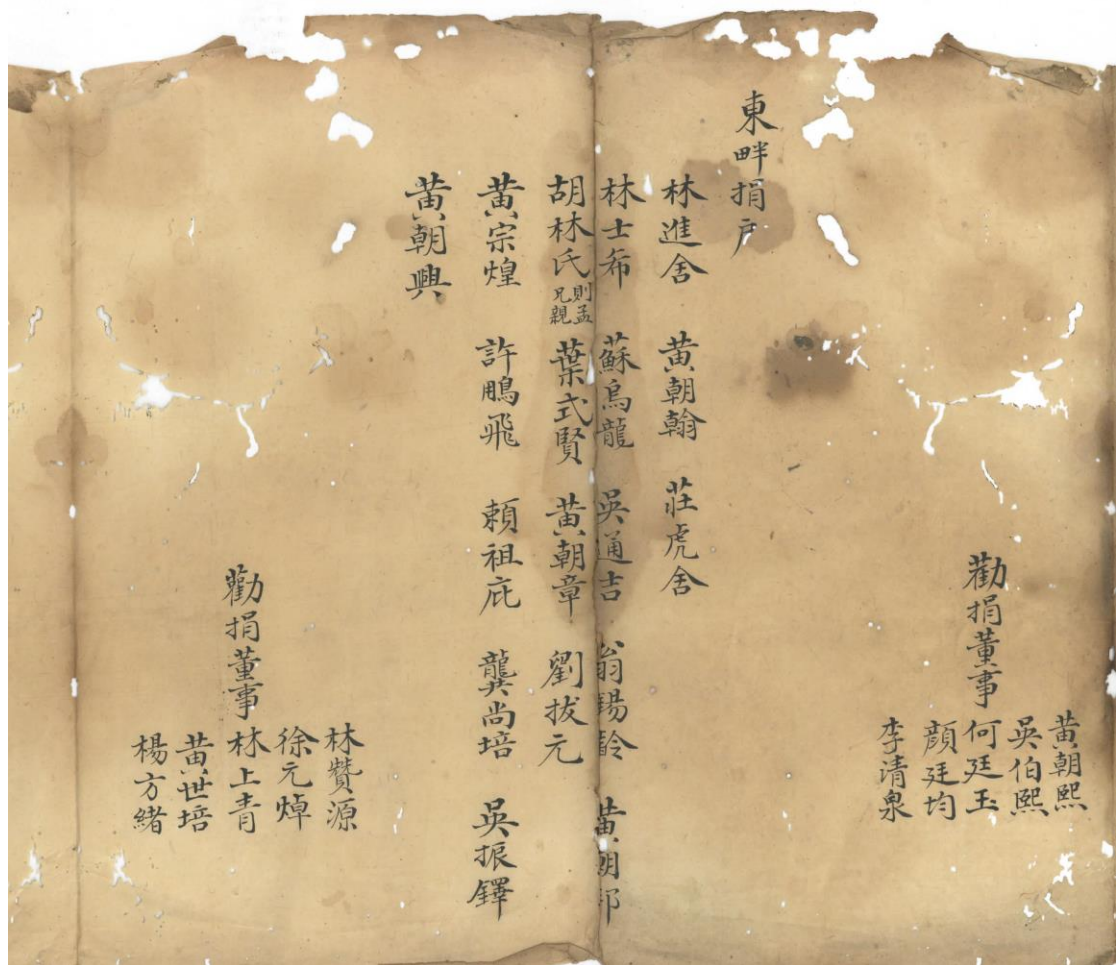 勸捐董事
黄朝熙
吳伯熙
何廷玉
顏廷均
李清泉
東畔捐户
林進舍 黄朝翰 莊虎舍
林士希 蘇烏龍 吳通吉 翁錫齡 黄朝邦
胡林氏 則孟兄親 葉式賢 黄朝章 劉拔元
黄宗煌 許鵰飛 賴祖庇 龔尚培 吳振鐸
黄朝興
勸捐董事
林贊源
徐元焯
林上青
黄世培
楊方緒